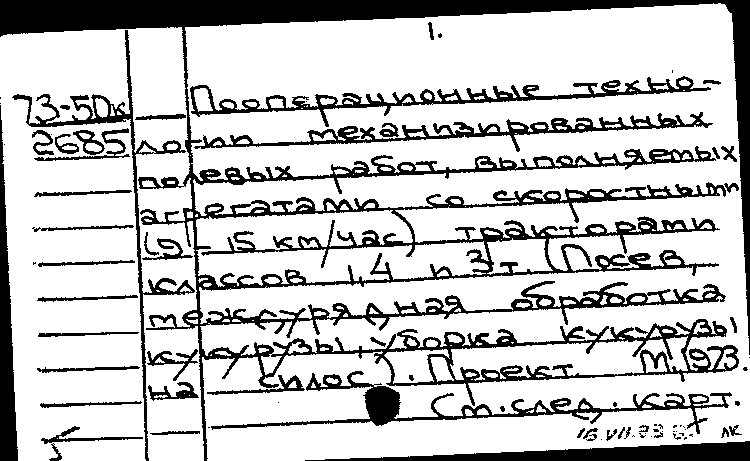 1.
73-50к Пооперационные техно-
2685 логии механизированных
полевых работ, выполняемых
агрегатами со скоростными
(9-15 км/час) тракторами
классов 1,4 и 3 т. (Посев,
междурядная обработка
кукурузы, уборка кукурузы
на силос). Проект. М., 1973.
См. след. карт.
16.VII.73 лк